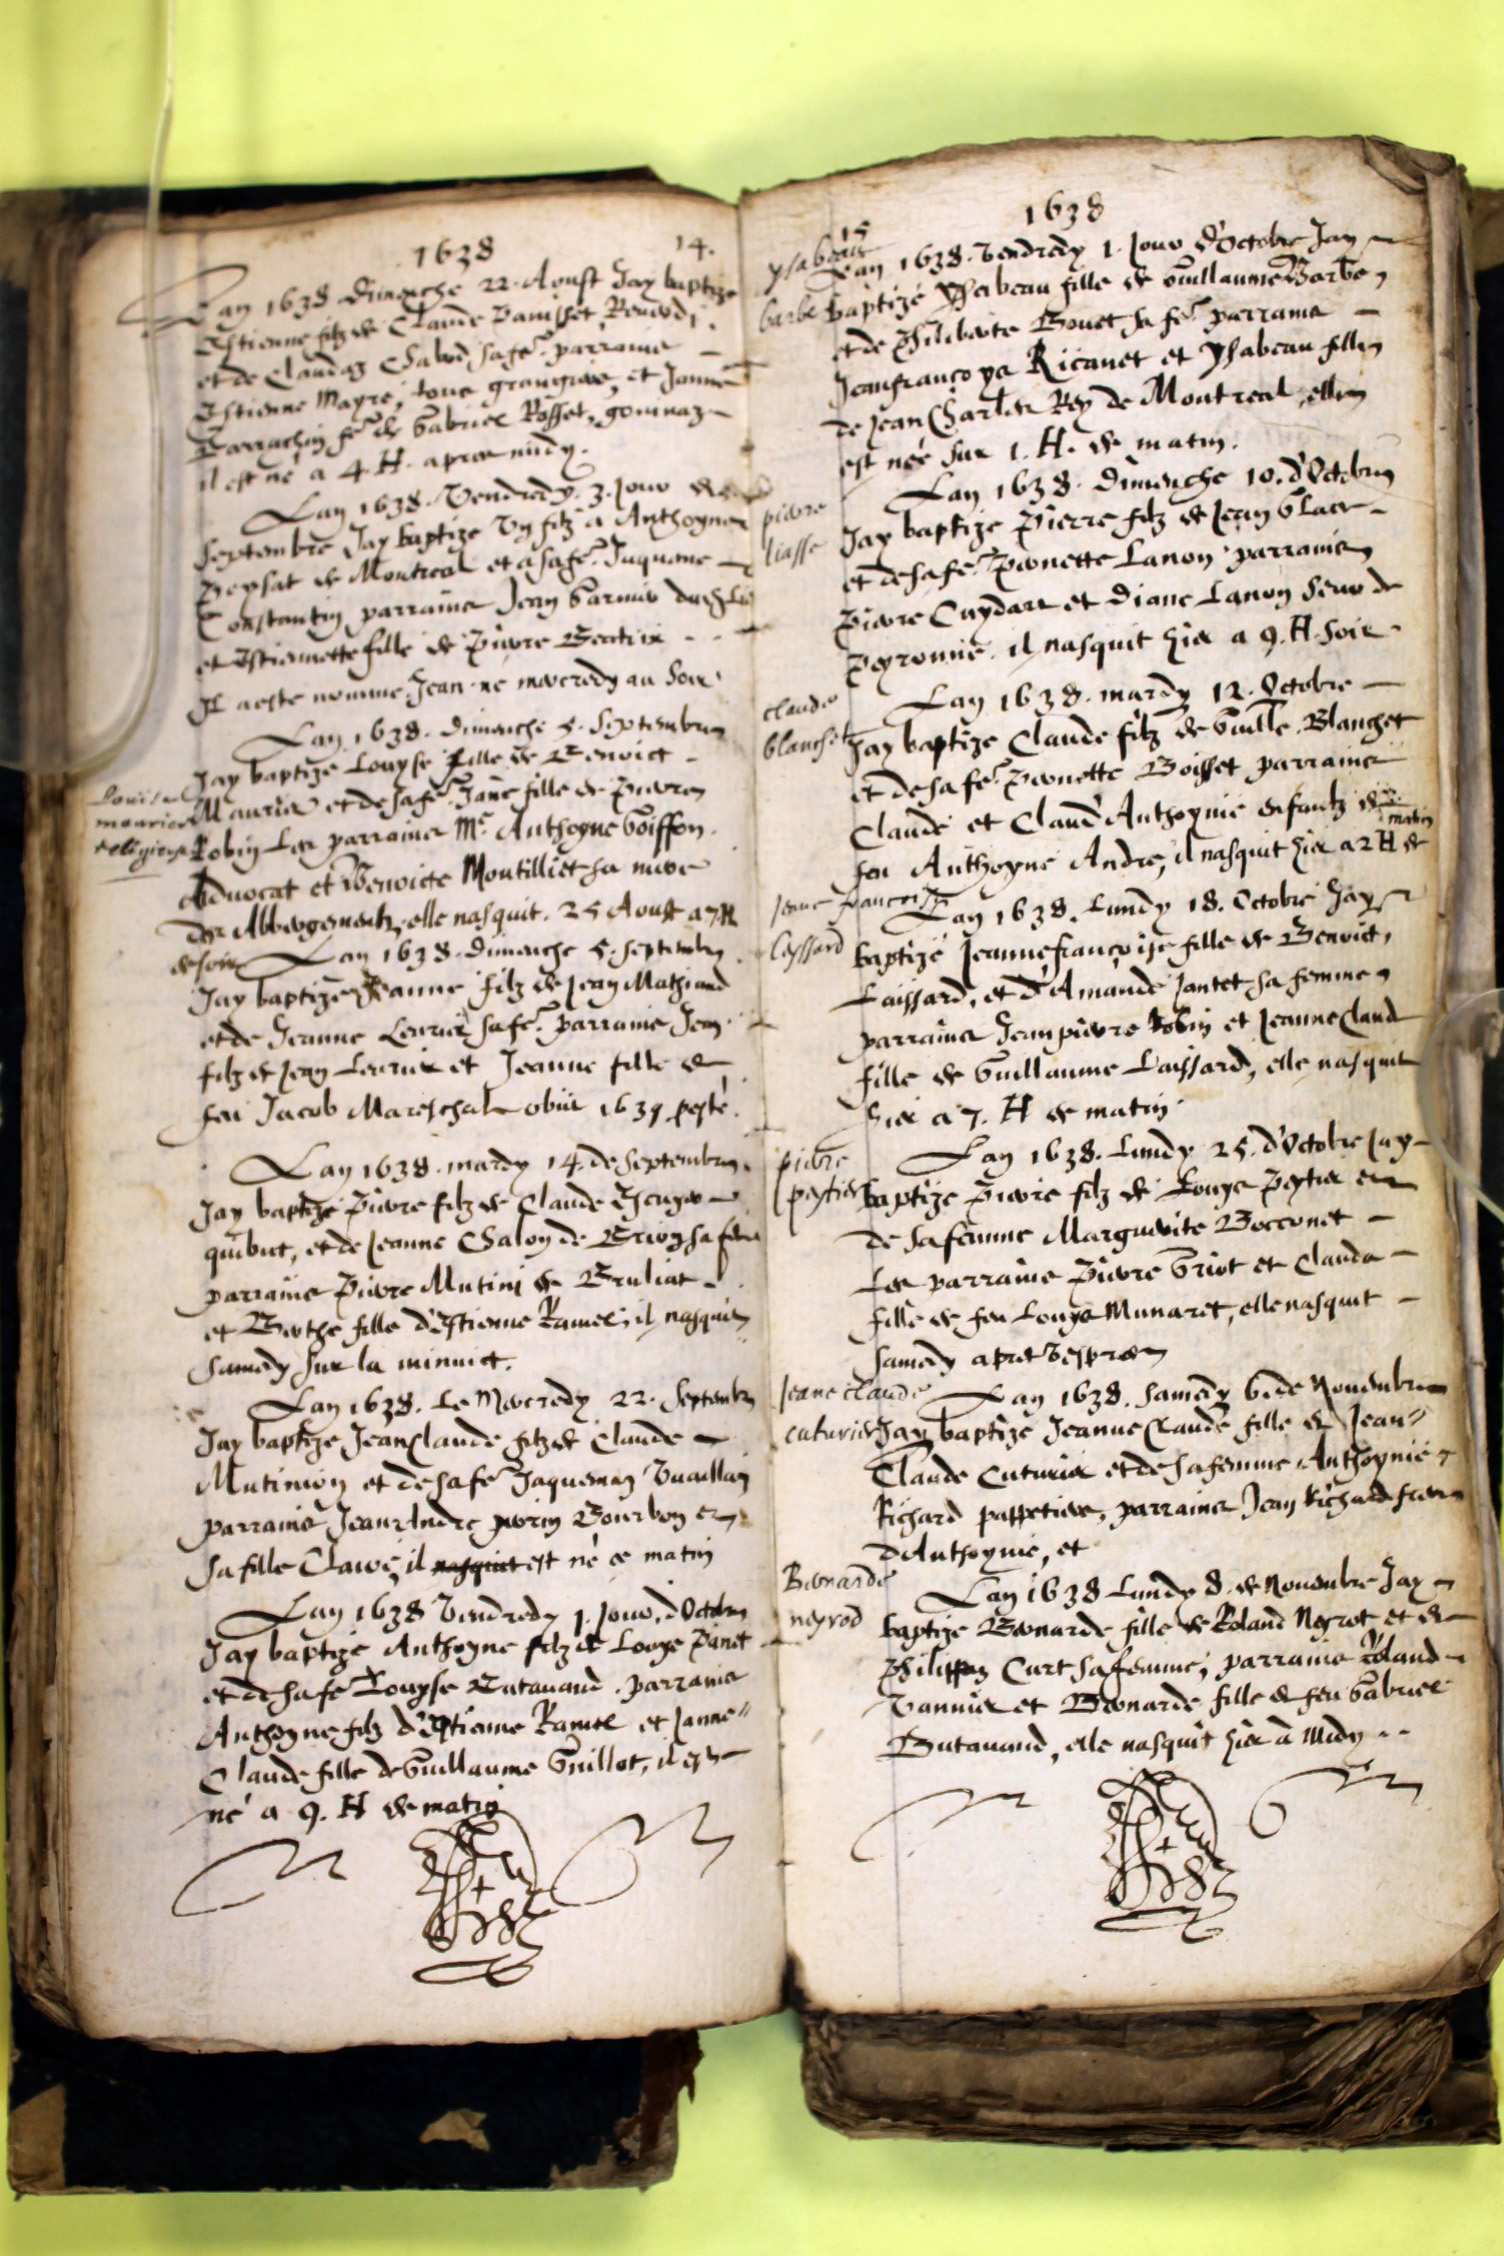 1638 14.
Lan 1638 Dimenche 22. Aoust Jay baptize
Estienne filz de Claude
et de Claudaz Chabod sa fe. parrains
Estienne Mayre, et Janne
fe. de Gabriel Rosset,
il est né a 4. H. apres midy.
Lan 1638. Vendredy. 3. jour de
Septembre Jay baptize Un filz a Anthoyne
Peysat de Montreal et a sa fe. Jaqueme
Constantin parrains Jean Garnier
et Estiennette fille de Pierre
Il a este nomme Jean né mecredy au Soir.
Lan 1638. Dimenche 5. Septembre
Jay baptize Louyse fille de Benoict
Louise
maurier
religieuse
Maurier et de sa fe. Jane fille de Pierre
Robin Les parrains Me. Anthoyne Goiffon
Advocat et Benoicte Montilliet sa mere
Des Abbergements, elle nasquit. 25 Aoust a 7 H
de soir
Lan 1638. dimenche 5. septembre
Jay baptize Jeanne filz de Jean Mathiand
et de Jeanne Leurier sa fe. parrains Jean
filz de Jean Leurier et Jeanne fille de
feu Jacob Mareschal obiit 1639 peste.
Lan 1638. mardy 14. de Septembre
Jay baptize Pierre filz de Claude
quibut, et de Jeanne Chalon de Brion sa feme
parrains Pierre Mutini de Bruliat
et Berthe fille d'Estienne Ramel, il nasquit
samedy sur la minuict.
Lan 1638. Le Mecredy 22. Septembre
Jay baptize Jean Claude filz de Claude
Mutinion et de sa fe. Jaquemaz Vuaillan
parrains Jean Andre perrin Bourbon et
sa fille Clauda, il nasquit est né ce matin
Lan 1638 Vendredy 1. jour d'Octobre
Jay baptize Anthoyne filz de Louys Panet
et de sa fe Louyse Butavand. parrains
Anthoyne filz d'Estienne Ramel et Janne
Claude fille de Guillaume Guillot, il est
né a 9. H de matin
1638
15
ysabeau
barbe
Lan 1638. Vendredy 1. Jour d'Octobre Jay
baptizé Ysabeau fille de Guillaume Barbe
et de Philiberte Bouet sa fe. parrains
Jeanfrançoys Ricanet et Ysabeau fille
de Jean Charles Rey de Montreal, elle
est née sur 1. H. de matin.
pierre
liasse
Lan 1638. Dimenche 10. d'Octobre
Jay baptize Pierre filz de Jean
et de sa fe. Pernette Lanon. parrains
Pierre Cuydare et Diane Lanon Seur de
Peyronne. il nasquit hier a 9. H. Soir.
claude
blanchet
Lan 1638. mardy 12. Octobre
Jay baptize Claude filz de Guille Blanchet
et de sa fe. Pernette Boisset parrains
Claude et Claud' Anthoynie enfantz de
feu Anthoyne Andre, il nasquit hier a 2 H de
matin
Jeane francoise
Layssard
Lan 1638. Lundy 18. Octobre Jay
baptizé Jeanne françoise fille de Benoict,
Laissard, et d'Amande Jantet sa femme
parrains Jeanpierre Robin et Jeanne Claud
fille de Guillaume Laissard, elle nasquit
hier a 7. H de matin.
pierre
peytier
Lan 1638. Lundy 25. d'Octobre Jay
baptize Pierre filz de Louys Peytier et
de sa femme Marguerite Bocconet
Les parrains Pierre Griot et Clauda
fille de feu Louys Munaret, elle nasquit
samedy apres Vespres
Jeane claude
cuturier
Lan 1638. Samedy 6. de Novembre
Jay baptizé Jeanne Claude fille de Jean
Claude Cuturier et de sa femme Anthoynie
Richard pappetiere, parrains Jean Richard frere
d'Anthoynie, et
Bernarde
neyrod
Lan 1638 Lundy 8. de Novembre Jay
baptize Bernarde fille de Roland Neyrot et de
Philippaz Curt sa femme, parrains Roland
Vannier et Bernarde fille de feu Gabriel
Butavand, elle nasquit hier a Midy